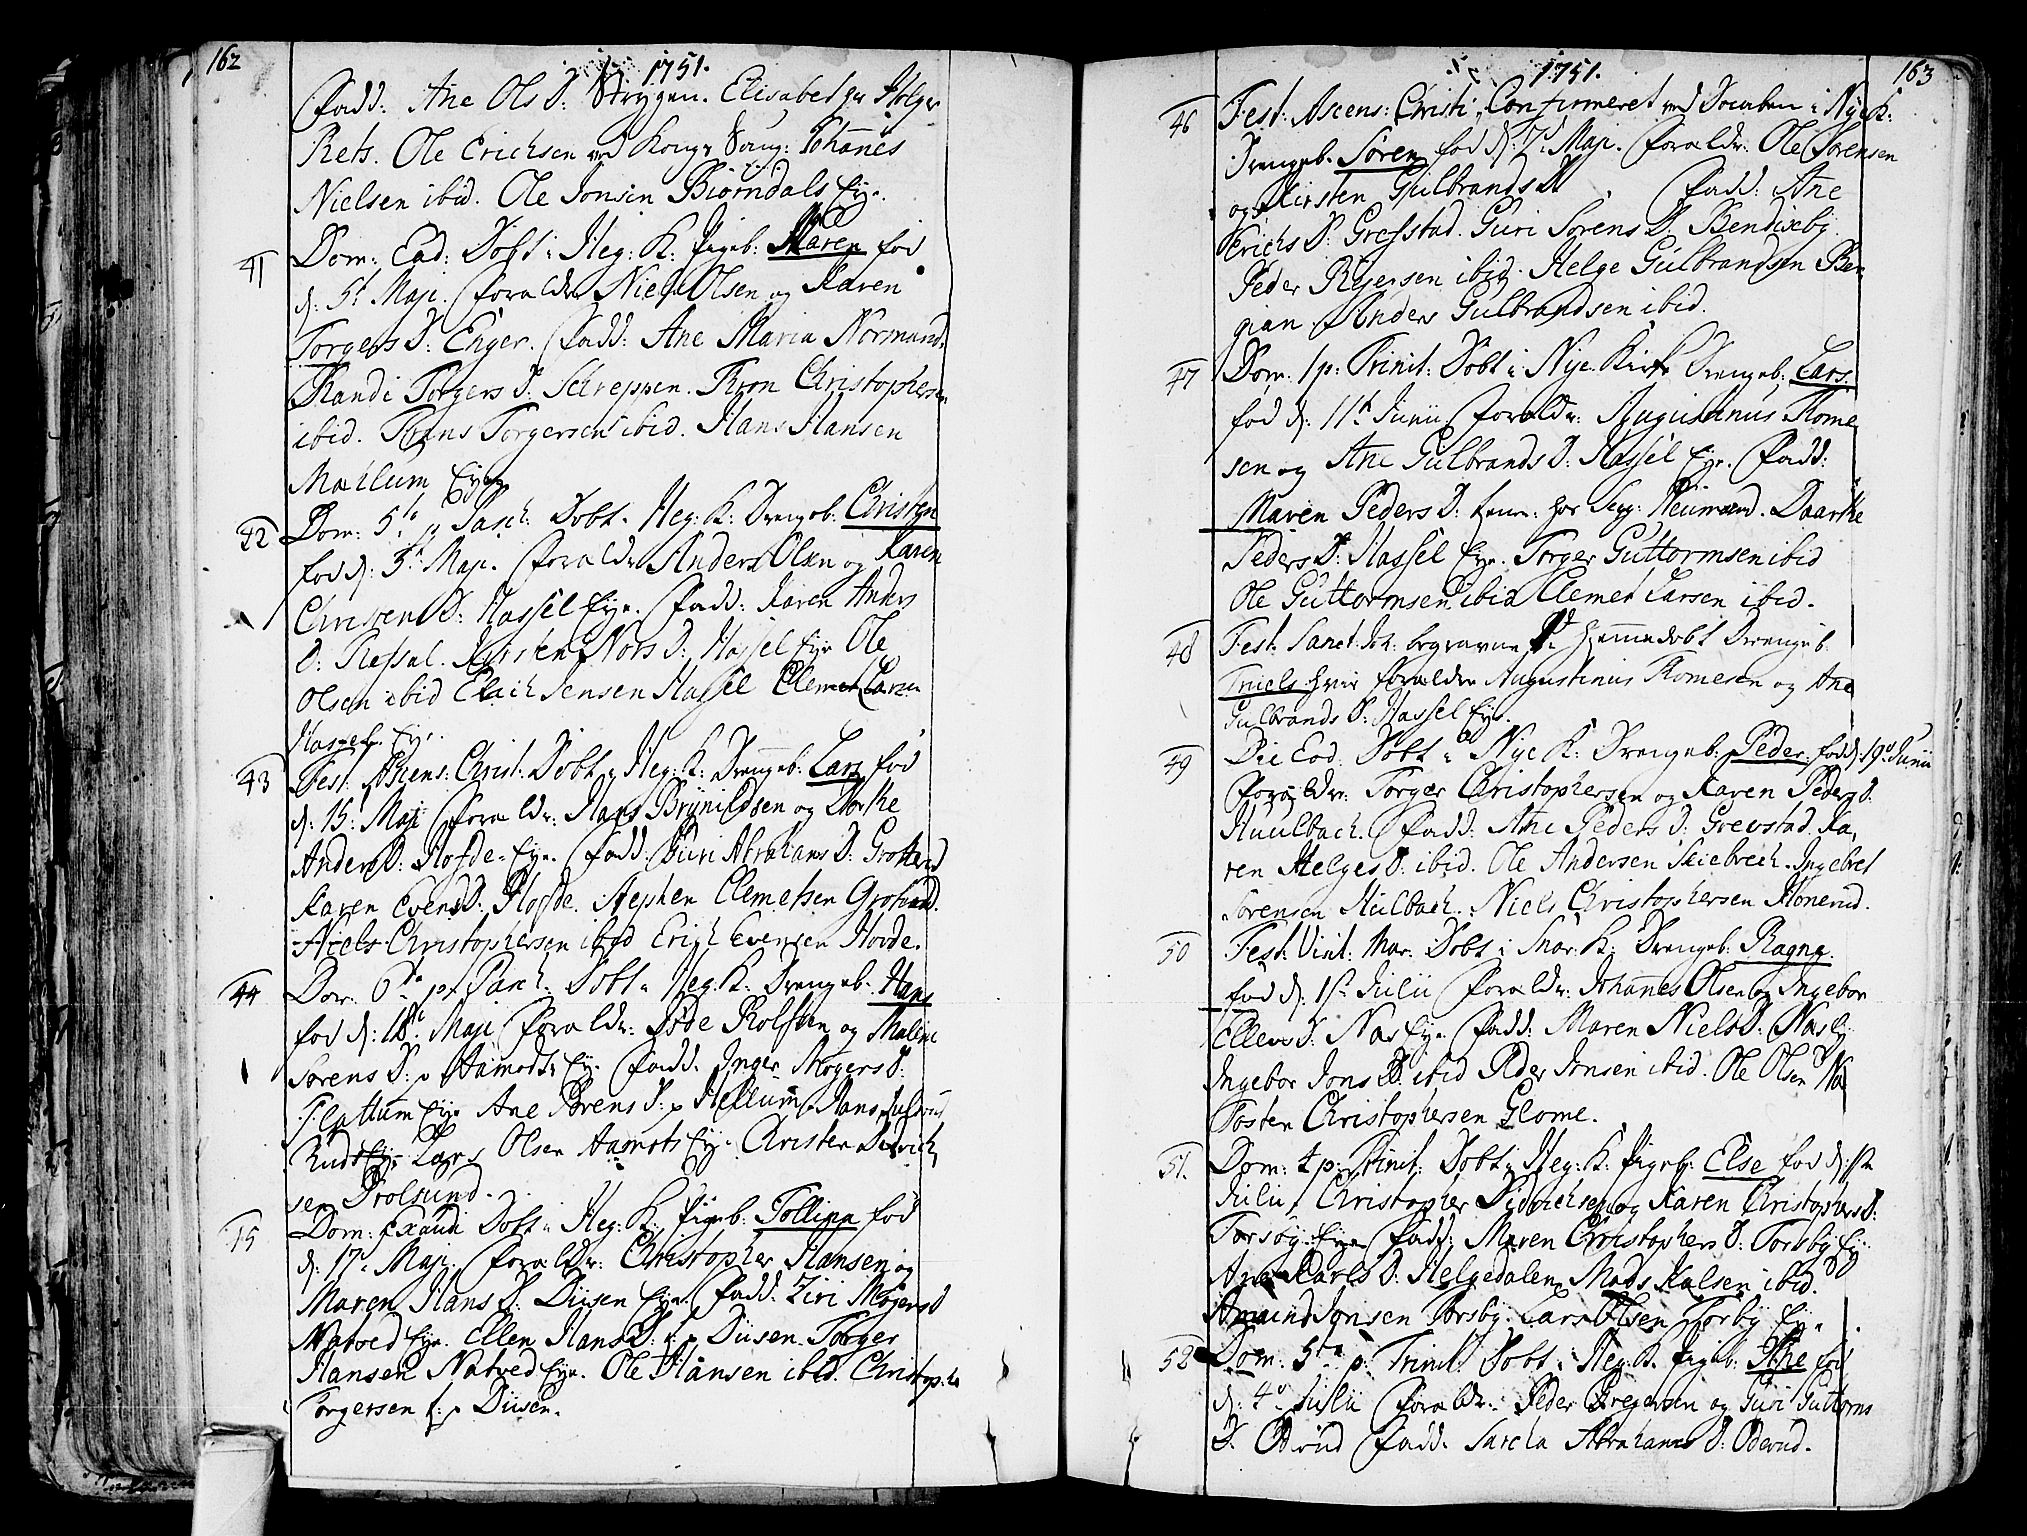 162
1751.
Fadd: Ane Ols D: Strygen. Elisabet
Rets. Ole Erichsen ved Kongs Johanes
Nielsen ibid. Ole Jonsen Biörndals Eye.
41 Dom: Ead: Döbt i Heg: K: Pigeb: Maren fød
d: 5t Maji. Forældr Niels Olsen og Karen
Torgers D: Enger. Fadd: Ane Maria Normand.
Randi Torgers D: Schreppen. Thron Christophersen
ibid. Hans Torgersen ibid. Hans Hansen
Mælum Eye.
42 Dom: 5te p Pasch: Döbt i Heg: K: Drengeb: Christen
fød d: 3t Maji. Forældr Anders Olsen og Karen
Christens D: Hassel Eye. Fadd: Karen Anders
D: Ressal. Kirsten Nors D: Hassel Eye Ole
Olsen ibid Jensen Hassel Clemet Larsen
Hassel Eye.
43 Fest: Ascens: Christ: Döbt i Heg: K: Drengeb: Lars fød
d: 15: Maji Forældr: Hans Brynildsen og Dorthe
Anders D: Hofde Eye. Fadd: Guri Abrahams D: Grotterud
Karen Evens D: Hofde. Stephen Clemetsen Grotterud.
Niels Christophersen ibid Erich Evensen Hovde.
44 Dom: 6te p: Pasch: Döbt i Heg: K: Drengeb. Hans
fød d: 18de Maji Forældr: Rolfsen og Malene
Sörens D: Aamodt Eye. Fadd: Inger Mogens D:
Flattum Eye Ane Sörens D: Hellum. Hans
Rud Eye. Lars Olsen Aamots Eye. Christen Didrich
sen Prolsund.
45 Dom: Exaudi Döbt i Heg: K: Pigeb: Tollina fød
d: 17de Maji. Forældr: Christopher Hansen og
Maren Hans D: Diisen Eye. Fadd: Ziri Mogens D
Natved Eye. Ellen Hans D: Diisen. Torger
Hansen Natved Eye. Ole Hansen ibid. Christopher
Torgersen Diisen.
163
1751.
46 Fest: Ascens: Christi, Confirmeret ved Daaben i Nye K:
Drengeb. Sören fød d: 7d Maji. Forældr. Ole Sörensen
og Kirsten Gulbrands D. Fadd: Ane
Erichs D: Gresstad. Guri Sörens D: Bendixeby.
Peder Reyersen ibid. Helge Gulbrandsen Ber
gian. Anders Gulbrandsen ibid.
47 Dom: 1 p: Trinit: Döbt i Nye Kirke Drengeb. Lars.
fød d: 11te Junii Forældr: Augustinus Thome
sen og Ane Gulbrands D: Hassel Eye. Fadd:
Maren Peders D: hos Neumand. Daarthe
Peders D: Hassel Eye. Torger Guttormsen ibid
Ole Guttormsen ibid Clemet Larsen ibid.
48 Fest: Sanct Joh: begraven hiemmedöbt Drengeb.
Truels hvis Forældre Augustinus Thomesen og Ane
Gulbrands D: Hassel Eye.
49 Die Eod. Döbt i Nye K: Drengeb. Peder. fød d: 19d Junii
Forældr: Torger Christophersen og Karen Peders D.
Huulbach. Fadd: Ane Peders D: Grevstad. Ka,
ren Helges D. ibid. Ole Andersen Skiebrech. Ingebret
Sörensen Hulbach. Niels Christophersen Hönerud.
50 Fest: Visit: Mar. Döbt i Snar: K: Drengeb. Ragne.
fød d. 1ste Julii Forældr: Johannes Olsen og Ingebor
Ellevs D: Næs Eye. Fadd: Maren Niels D: Næs Ey
Ingebor Jons D. ibid Peder Jonsen ibid. Ole Olsen Næs
Tosten Christophersen Glome.
51. Dom: 4 p: Trinit: Döbt i Heg: K: Pigeb: Else fød d: 1ste
Julii, Christopher Didrichsen og Karen Christophers D:
Torsby Eye Fadd: Maren Christophers D: Torsby Ey
Ane Karls D: Helgedalen Mads Kalsen ibid.
Amund Jonsen Torsby. Lars Olsen Torby Eye
52 Dom: 5te p: Trinit: Döbt i Heg: K. Pigeb: Ane fød
d: 4de Julii Forældr: Peder Gregersen og Guri Guttorms
D. Oderud Fadd. Abrahams D: Oderud.